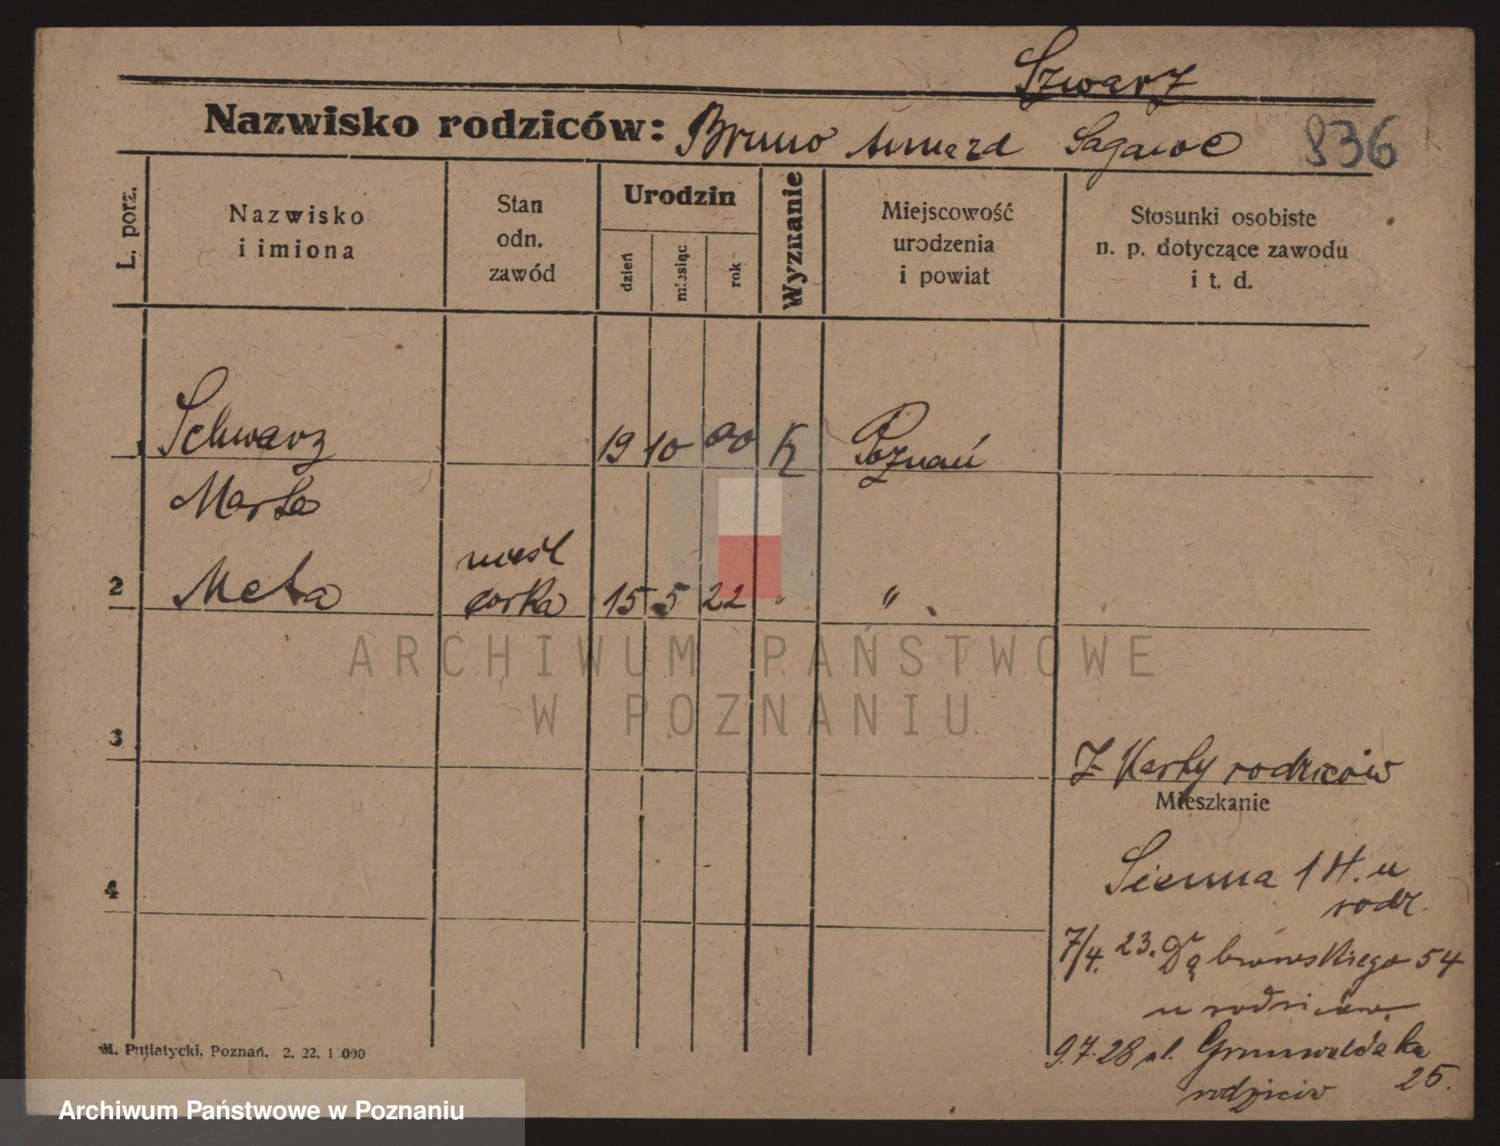 Szwarz
Nazwisko rodziców: Bruno
836
L. porz.
Nazwisko
i imiona
Stan
odn.
zawód
Urodzin
dzień
miesiąc
rok
Wyznanie
Miejscowość
urodzenia
i powiat
Stosunki osobiste
n. p. dotyczące zawodu
i t. d.
Schwarz 19 10 00 K Poznań
Marta
nieśl
2 Meta corka 15 5 22 " "
ARCHIWUM PAŃSTWOWE
W POZNANIU
3
Z Karty rodziców
Mieszkanie
Sienna 1 H. u
rodz.
4
7/4. 23. Dąbrowskiego 54
u rodziców
9.7.28 ul. Grunwaldzka
25.
rodziców
M. Putiatycki, Poznań. 2. 22. 1 000
Archiwum Państwowe w Poznaniu